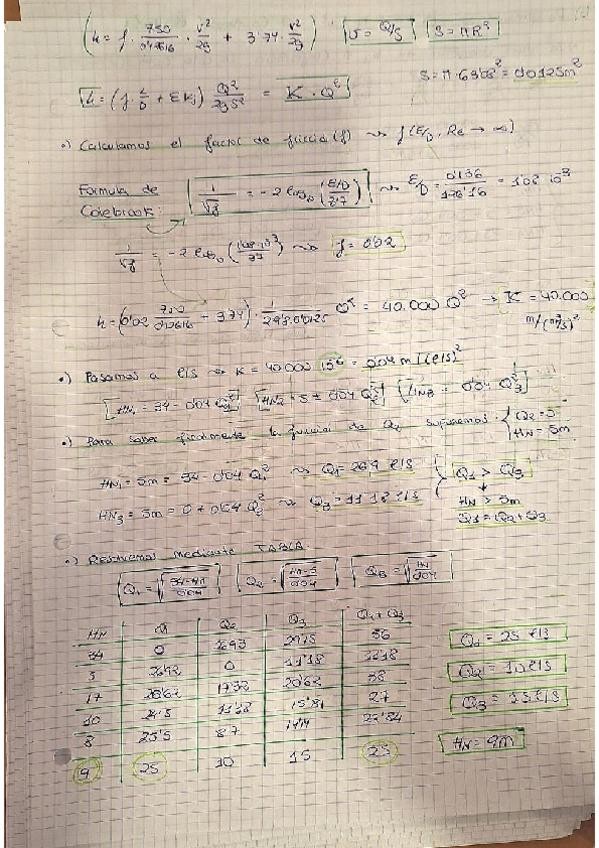 (h = f · 750/0'12616 · v²/2g + 3'74 · v²/2g) v = Q/S S = πR²
S = π · 63'08² = 0'0125 m²
h = (f · L/D + ΣKj) Q²/2gS² = K · Q²
•) Calculamos el factor de fricción (f) → f(E/D, Re → ∞)
Fórmula de Colebrook: 1/√f = -2 log₁₀ (E/D/3'7) → E/D = 0'136/126'16 = 1'08 · 10⁻³
1/√f = -2 log₁₀ (1'08·10⁻³/3'7) → f = 0'02
h = (0'02 750/0'12616 + 3'74) · 1/2·9'8·0'0125² Q² = 40.000 Q² → K = 40.000
m/(m³/s)²
•) Pasamos a l/s → K = 40.000 · 10⁻⁶ = 0'04 m/(l/s)²
[HN₁ = 34 - 0'04 Q₁²] [HN₂ = 5 + 0'04 Q₂²] [HN₃ = 0'04 Q₃²]
•) Para saber finalmente la función de Q₂ suponemos: { Q₂ = 0
HN = 5m
HN₁ = 5m = 34 - 0'04 Q₁² → Q₁ = 26'9 l/s
Q₁ > Q₃
HN₃ = 5m = 0 + 0'04 Q₃² → Q₃ = 11'18 l/s
HN > 5m
Q₁ = Q₂ + Q₃
•) Resolvemos mediante TABLA
Q₁ = √(34-HN/0'04) Q₂ = √(HN-5/0'04) Q₃ = √(HN/0'04)
HN Q₁ Q₂ Q₃ Q₂ + Q₃
34 0 26'93 29'15 56
5 26'92 0 11'18 11'18
17 20'62 17'32 20'62 38
10 24'5 11'18 15'81 27
8 25'5 8'7 14'14 22'84
9 25 10 15 25
Q₁ = 25 l/s
Q₂ = 10 l/s
Q₃ = 15 l/s
HN = 9m